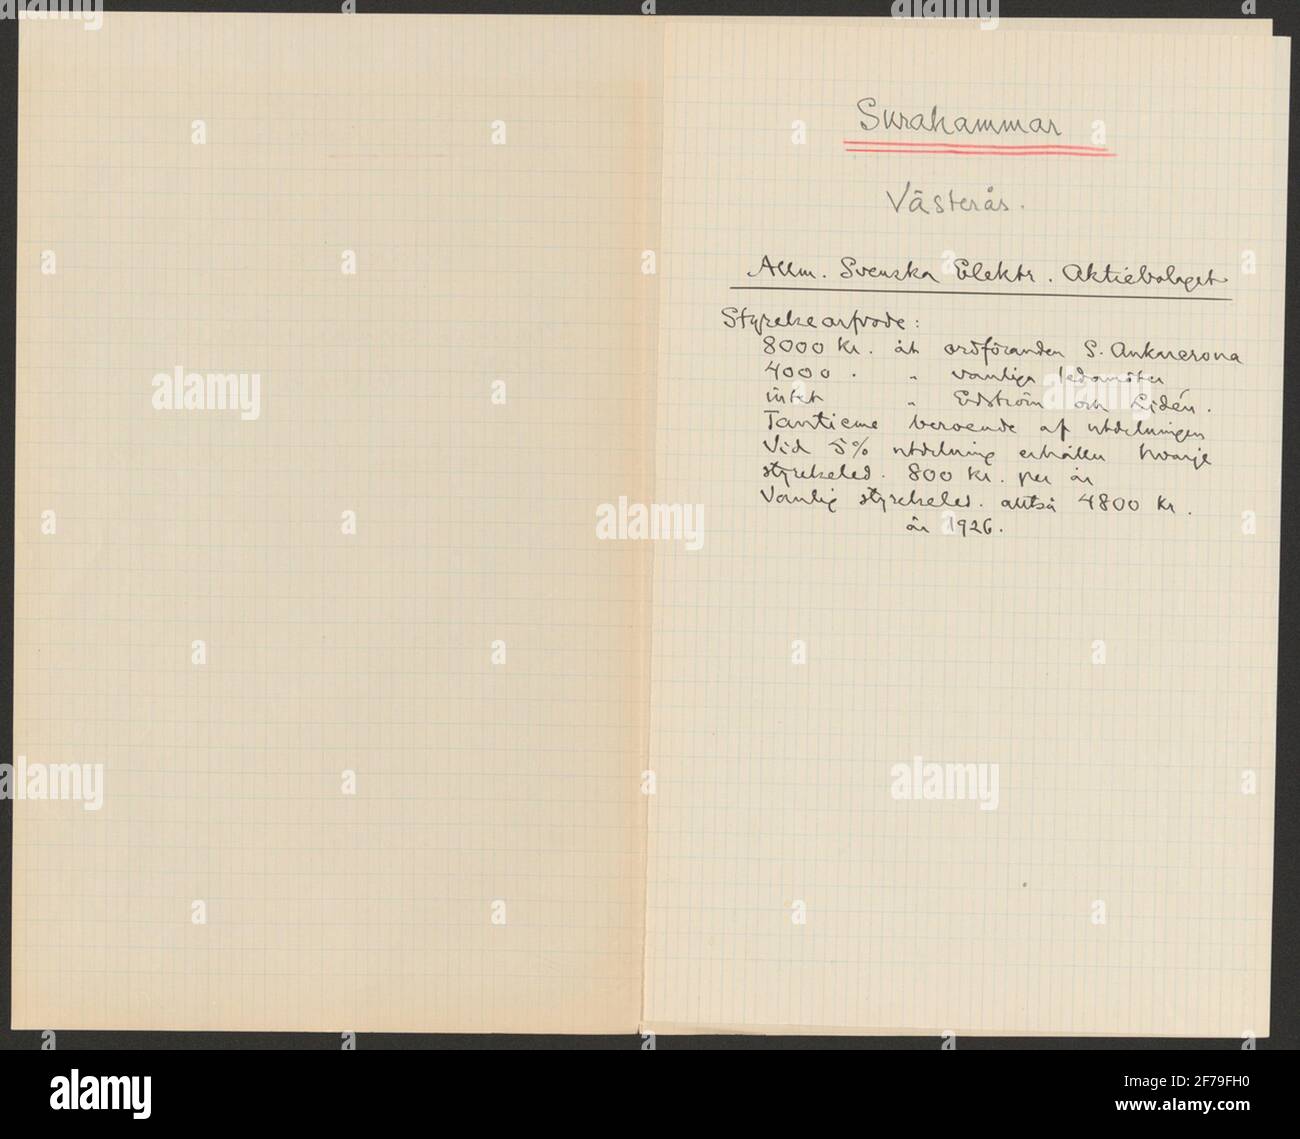 Surahammar
Västerås.
Allm. Svenska Elektr. Aktiebolaget
Styrelsearfvode:
8000 Kr. åt ordföranden S. Ankarcrona
4000 . " vanliga ledamöter
intet " Edström och Lidén.
Tantieme beroende af utdelningen
Vid 5% utdelning erhåller hvarje
styrelseled. 800 Kr. per år
Vanlig styrelseled. alltså 4800 Kr.
år 1926.
alamy
alamy
alamy
alamy
alamy
Image ID: 2F79FH0
www.alamy.com